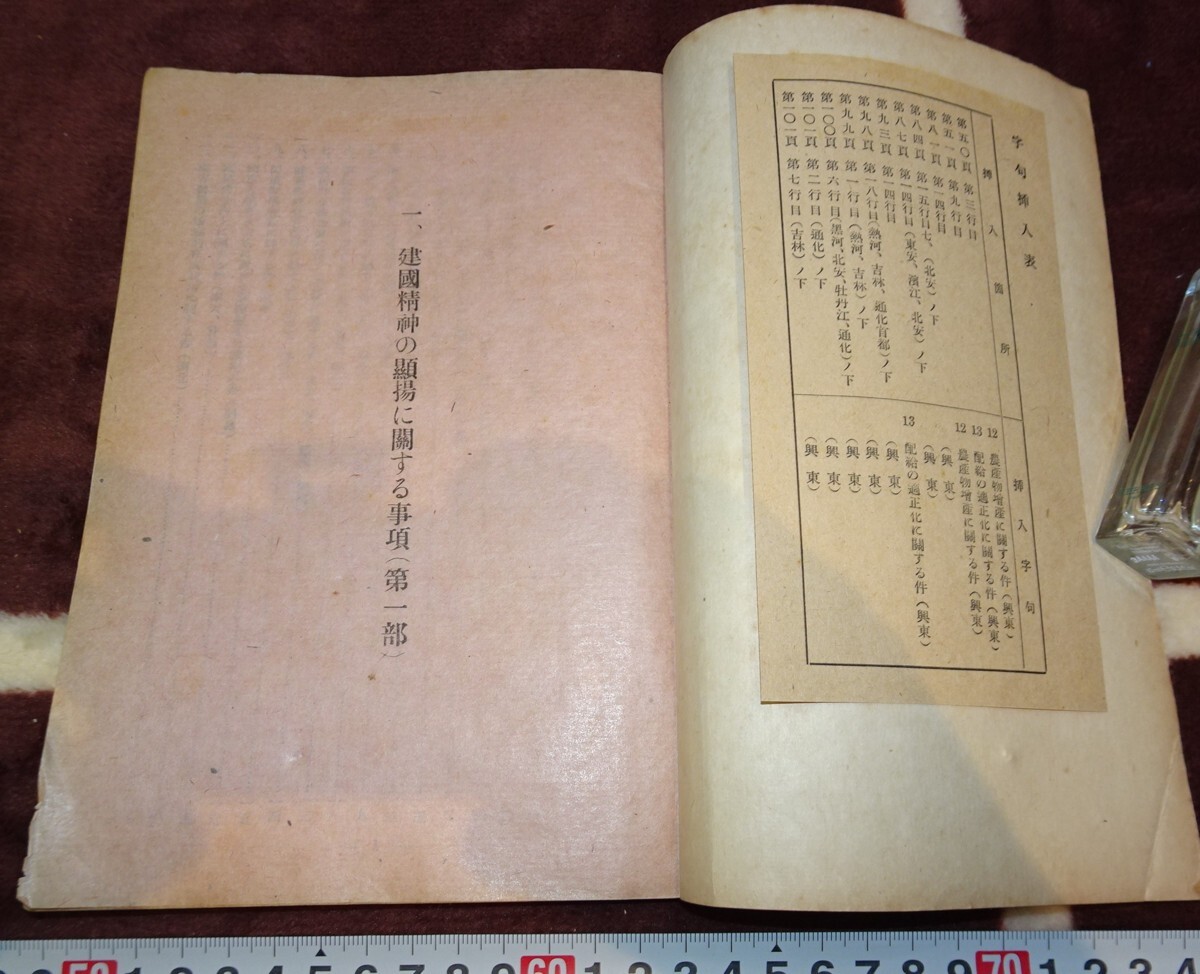 字句挿入表
挿入箇所 挿入字句
第五〇頁 第三行目 12 農産物增産に關する件(興東)
第五一頁 第九行目 13 配給の適正化に關する件(興東)
第八一頁 第一四行目 12 農産物增産に關する件(興東)
第八四頁 第一五行目七、(北安)ノ下 (興東)
第八七頁 第一四行目(東安、濱江、北安)ノ下 (興東)
第九三頁 第一四行目 13 配給の適正化に關する件(興東)
第九八頁 第一八行目(熱河、吉林、通化首都)ノ下 (興東)
第九九頁 第一行目(熱河、吉林)ノ下 (興東)
第一〇〇頁 第六行目(黑河、北安、牡丹江、通化)ノ下 (興東)
第一〇一頁 第二行目(通化)ノ下 (興東)
第一〇一頁 第七行目(吉林)ノ下 (興東)
一、建國精神の顯揚に關する事項(第一部)
50 1 2 3 4 5 6 7 8 9 60 1 2 3 4 5 6 7 8 9 70 1 2 3 4